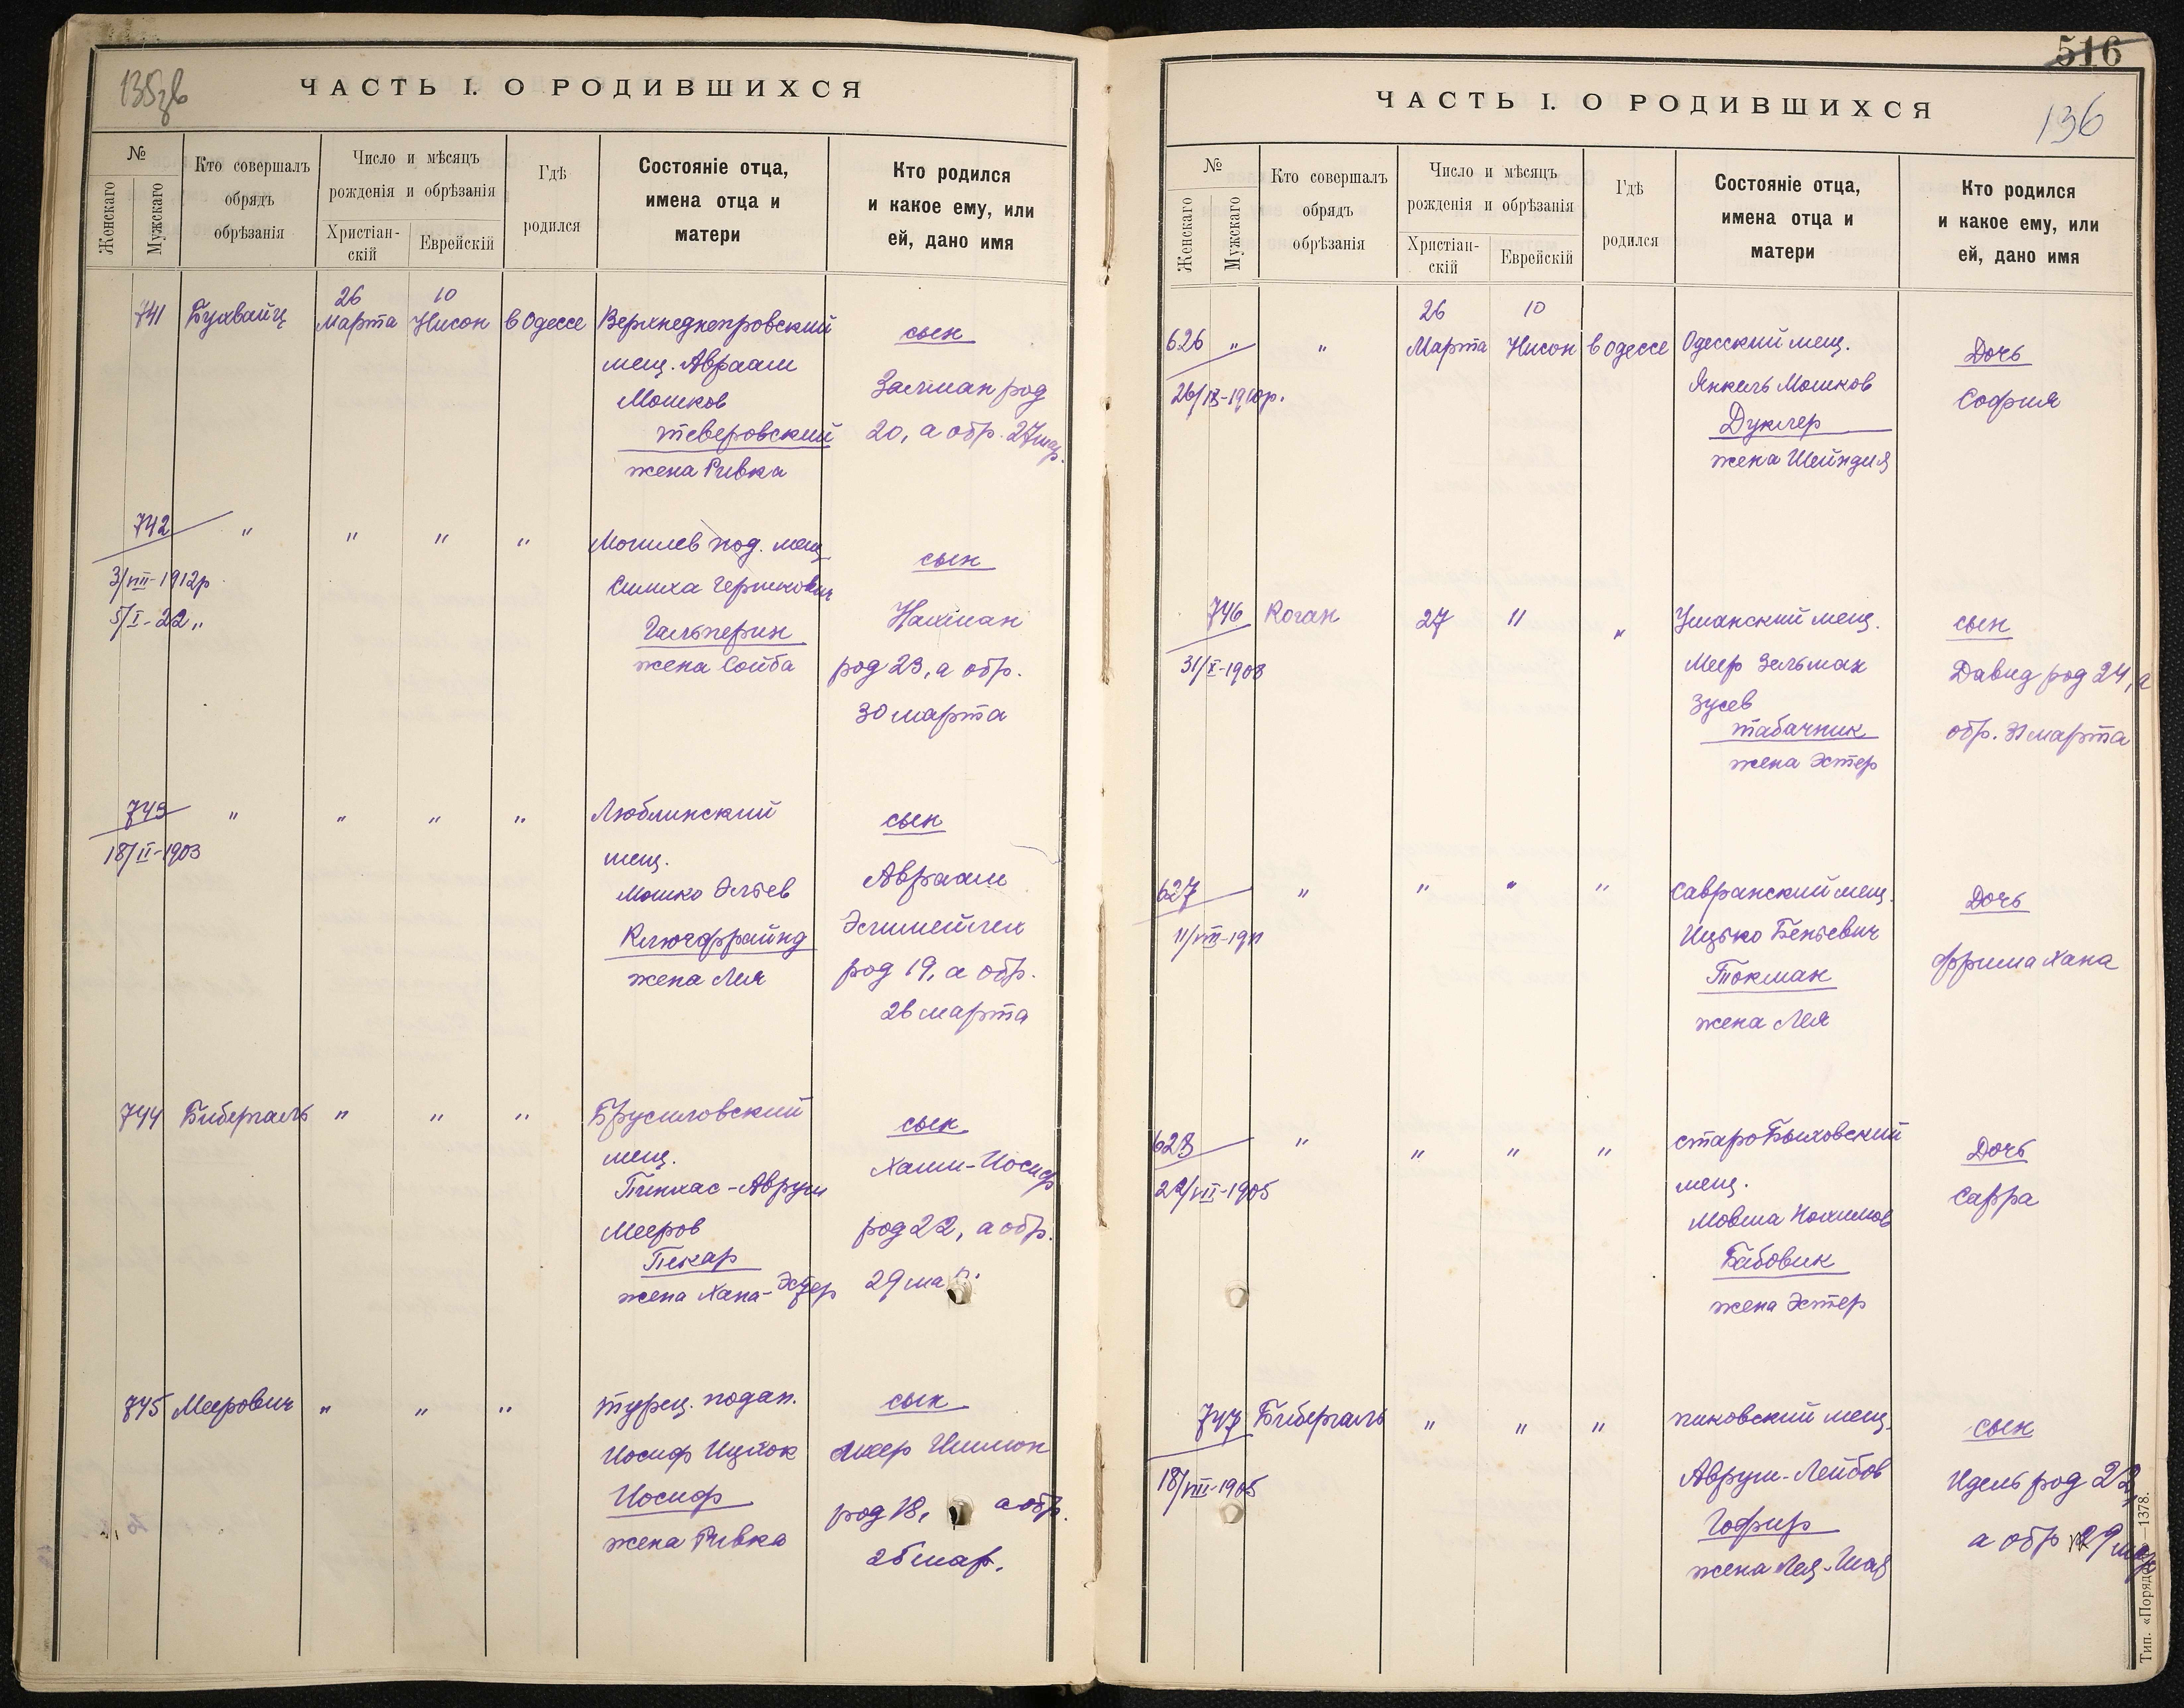 135зв
ЧАСТЬ I. О РОДИВШИХСЯ
№
Женскаго
Мужскаго
Кто совершалъ
обрядъ
обрѣзанія
Число и мѣсяцъ
рожденія и обрѣзанія
Христіан-
скій
Еврейскій
Гдѣ
родился
Состояніе отца,
имена отца и
матери
Кто родился
и какое ему, или
ей, дано имя
741 Бухвайц 26 Марта 10 Нисон в Одессе
Верхнеднепровский
мещ. Авраам
Мошков
тверовский
жена Ривка
сын
Залман род
20, а обр. 27 мар.
742 " " " "
3/VIII-1912р
5/I-22 "
Могилев под. мещ
Симха Гершкович
Гальперин
жена Сойба
сын
Нахман
род 23, а обр.
30 марта
743 " " " "
18/II-1903
Люблинский
мещ.
Мошко Эльев
Ключфрайнд
жена Лея
сын
Авраам
Элимейлех
род 19, а обр.
26 марта
744 Бибергаль " " "
Брусиловский
мещ.
Пинхас-Аврум
Мееров
Пекар
жена Хана-Эстер
сын
Хаим-Иосиф
род 22, а обр.
29 ма
745 Меерович " " "
турец. подан.
Иосиф Ицкок
Иосиф
жена Ривка
сын
род 18, а обр.
25 мар.
516
136
ЧАСТЬ I. О РОДИВШИХСЯ
№
Женскаго
Мужскаго
Кто совершалъ
обрядъ
обрѣзанія
Число и мѣсяцъ
рожденія и обрѣзанія
Христіан-
скій
Еврейскій
Гдѣ
родился
Состояніе отца,
имена отца и
матери
Кто родился
и какое ему, или
ей, дано имя
626 " " 26 Марта 10 Нисон в Одессе
Одесский мещ.
Янкель Мошков
Дуклер
жена Шейндля
Дочь
София
746 Коган 27 11 "
31/X-1908
Уманский мещ.
Меер Зельман
Зусев
табачник
жена Эстер
сын
Давид род 24, а
обр. 31 марта
627 " " " "
11/VIII-1911
Савранский мещ.
Ицько Беньевич
Токман
жена Лея
Дочь
Фрима Хана
628 " " " "
22/VII-1905
староБыховский
мещ.
Мовша Нохимов
Бабовик
жена Эстер
Дочь
Сарра
747 Бибергаль " " "
18/VIII-1905
пиковский мещ.
Аврум-Лейбов
Гофир
жена Лея-
сын
Идель род 22,
а обр 29 мар
Тип. «Порядок»—1378.